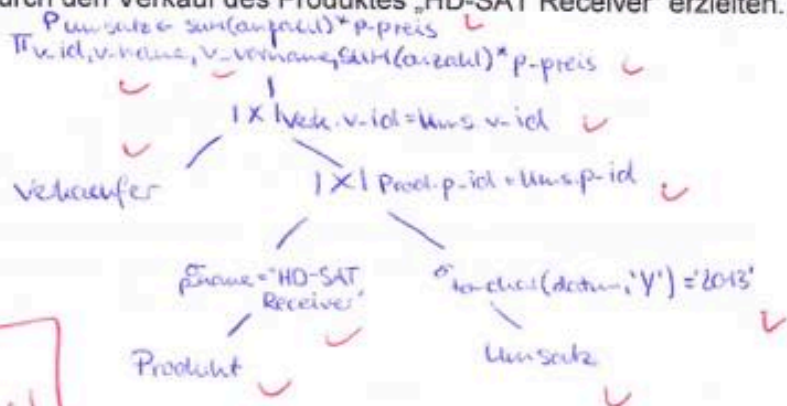 durch den Verkauf des Produktes „HD-SAT Receiver" erzielten.
ρ umsatz← sum(anzahl)*p-preis
π v-id, v-name, v-vorname, SUM(anzahl)* p-preis
|X| Verk.v-id=Ums.v-id
Verkaufer
|X| Prod.p-id=Ums.p-id
σ pname='HD-SAT
Receiver'
σ to-char(datum,'Y')='2013'
Produkt
Umsatz